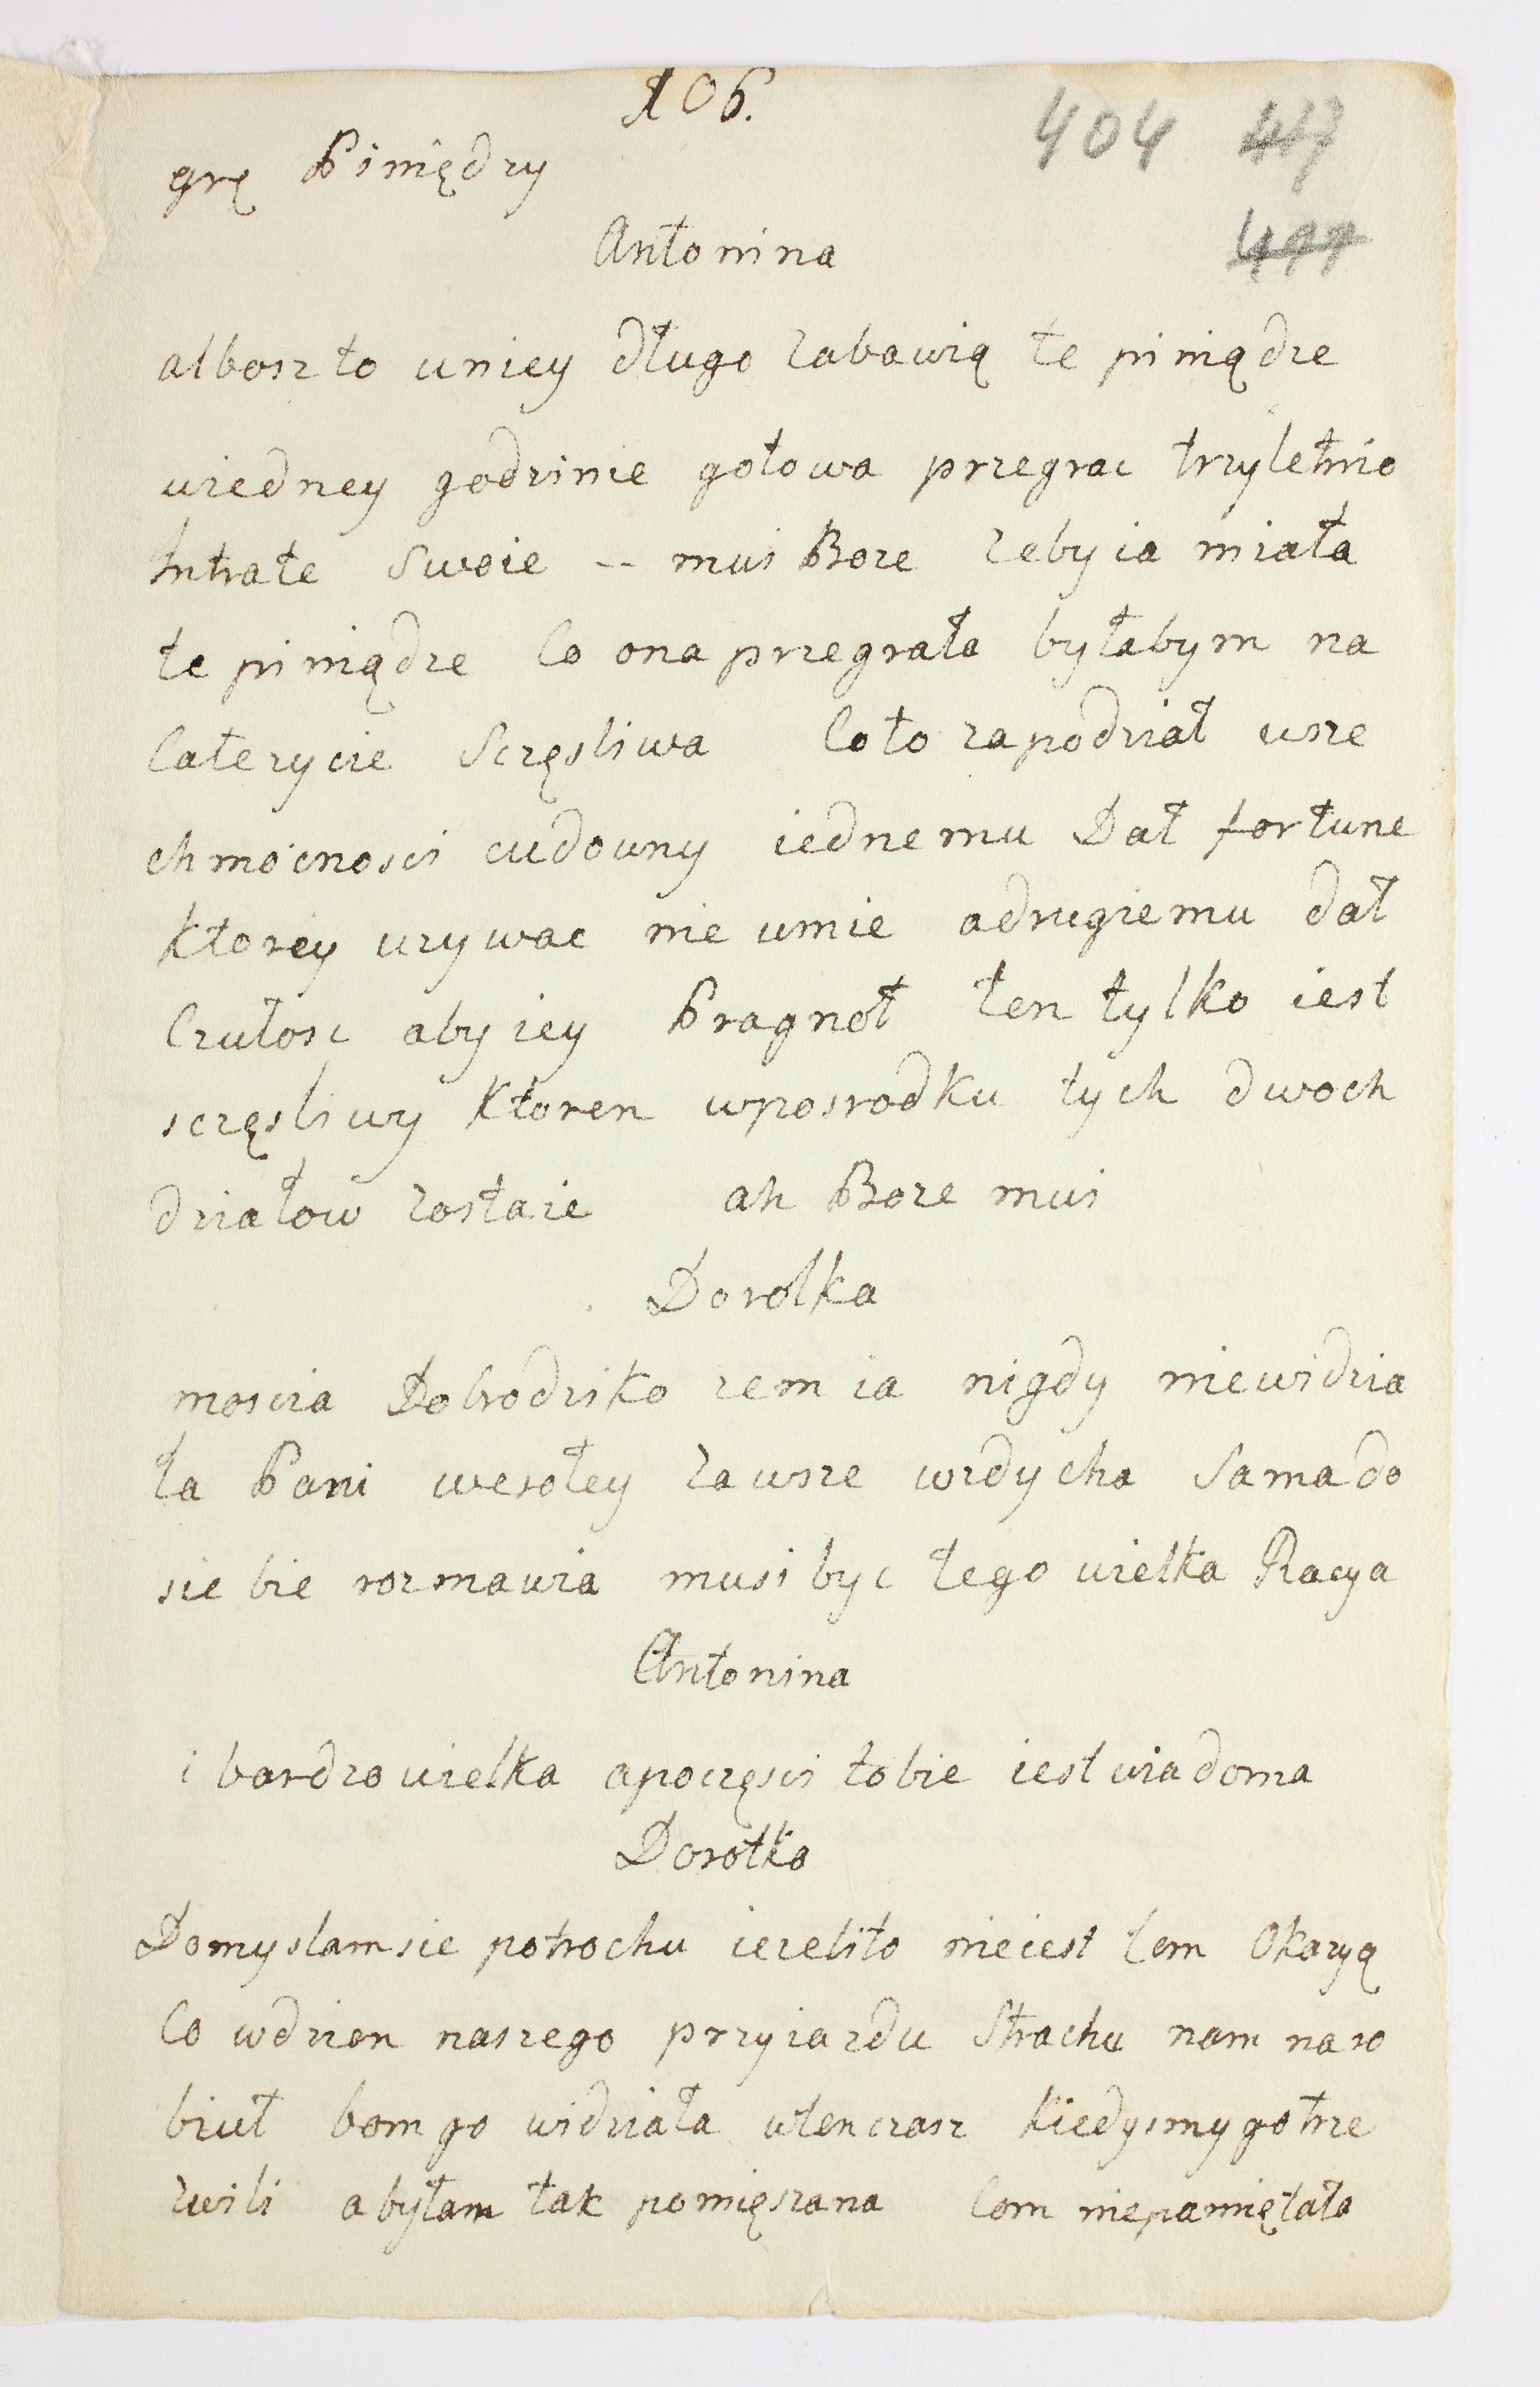 106.
404 417
grę Piniędzy
497
Antonina
alboszto uniey długo zabawią te piniądze
wiedney godzinie gotowa przegrac trzyletnio
Intrate Swoie -- mui Boze zeby ia miała
te piniądze Co ona przegrała byłabym na
Całezycie Sczęsliwa Coto zapodział wsze
chmocnosci cudowny iednemu Dał fortune
Ktorey uzywac nie umie adrugiemu dał
Czułosc aby iey Pragnoł ten tylko iest
sczęsliwy Ktoren wposrodku tych dwoch
działow zostaie ah Boze mui
Dorotka
moscia Dobrodziko zem ia nigdy niewidzia
ła Pani wesołey zawsze wzdycha Samado
siebie rozmawia musi byc tego wielka Racya
Antonina
i bardzowielka apoczęsci tobie iestwiadoma
Dorotka
Domyslamsie potrochu iezelito nieiest tem Okazyą
Co wdzien naszego przyiazdu Strachu nam naro
biuł bom go widziała wtenczasz kiedysmygotrze
zwili abyłam tak pomięszana Com niepamiętała